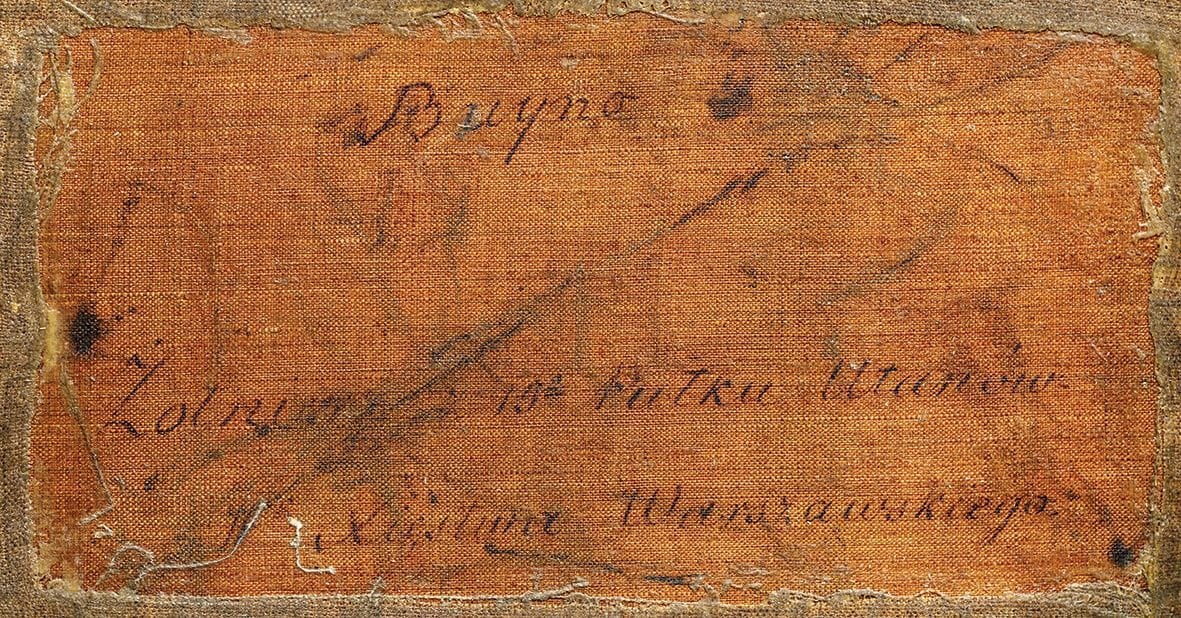 Bruyno
Żołnierz 19º Pułku Ułanów.
W. Xięstwa Warszawskiego.